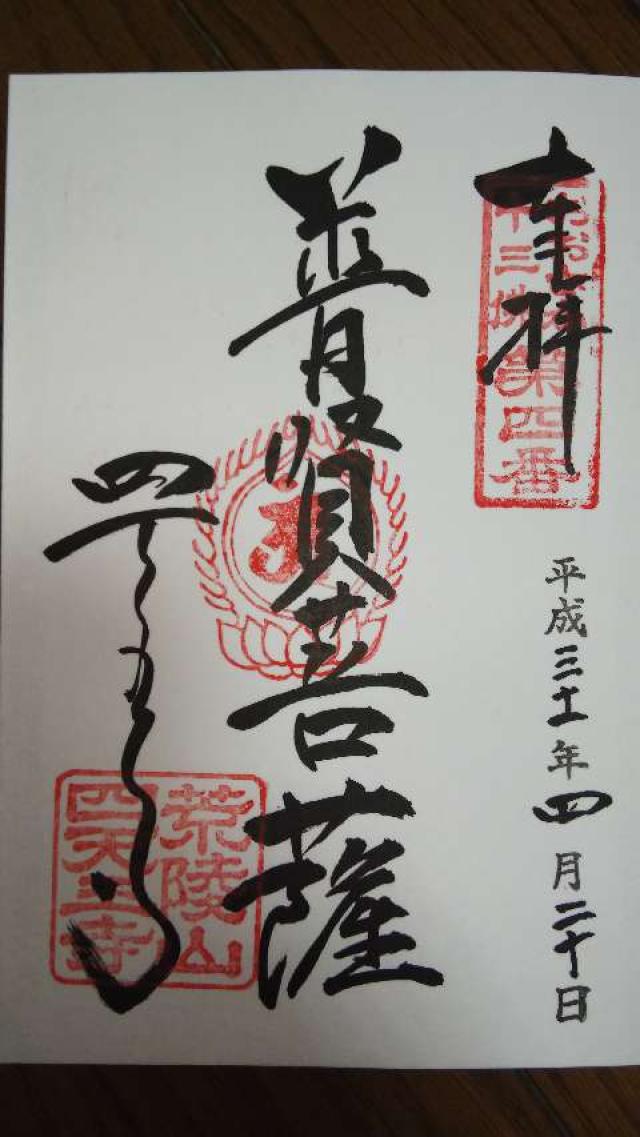 奉拝
おおさか
十三佛第四番
平成三十一年四月二十日
普賢菩薩
四天王寺
荒陵山
四天王寺